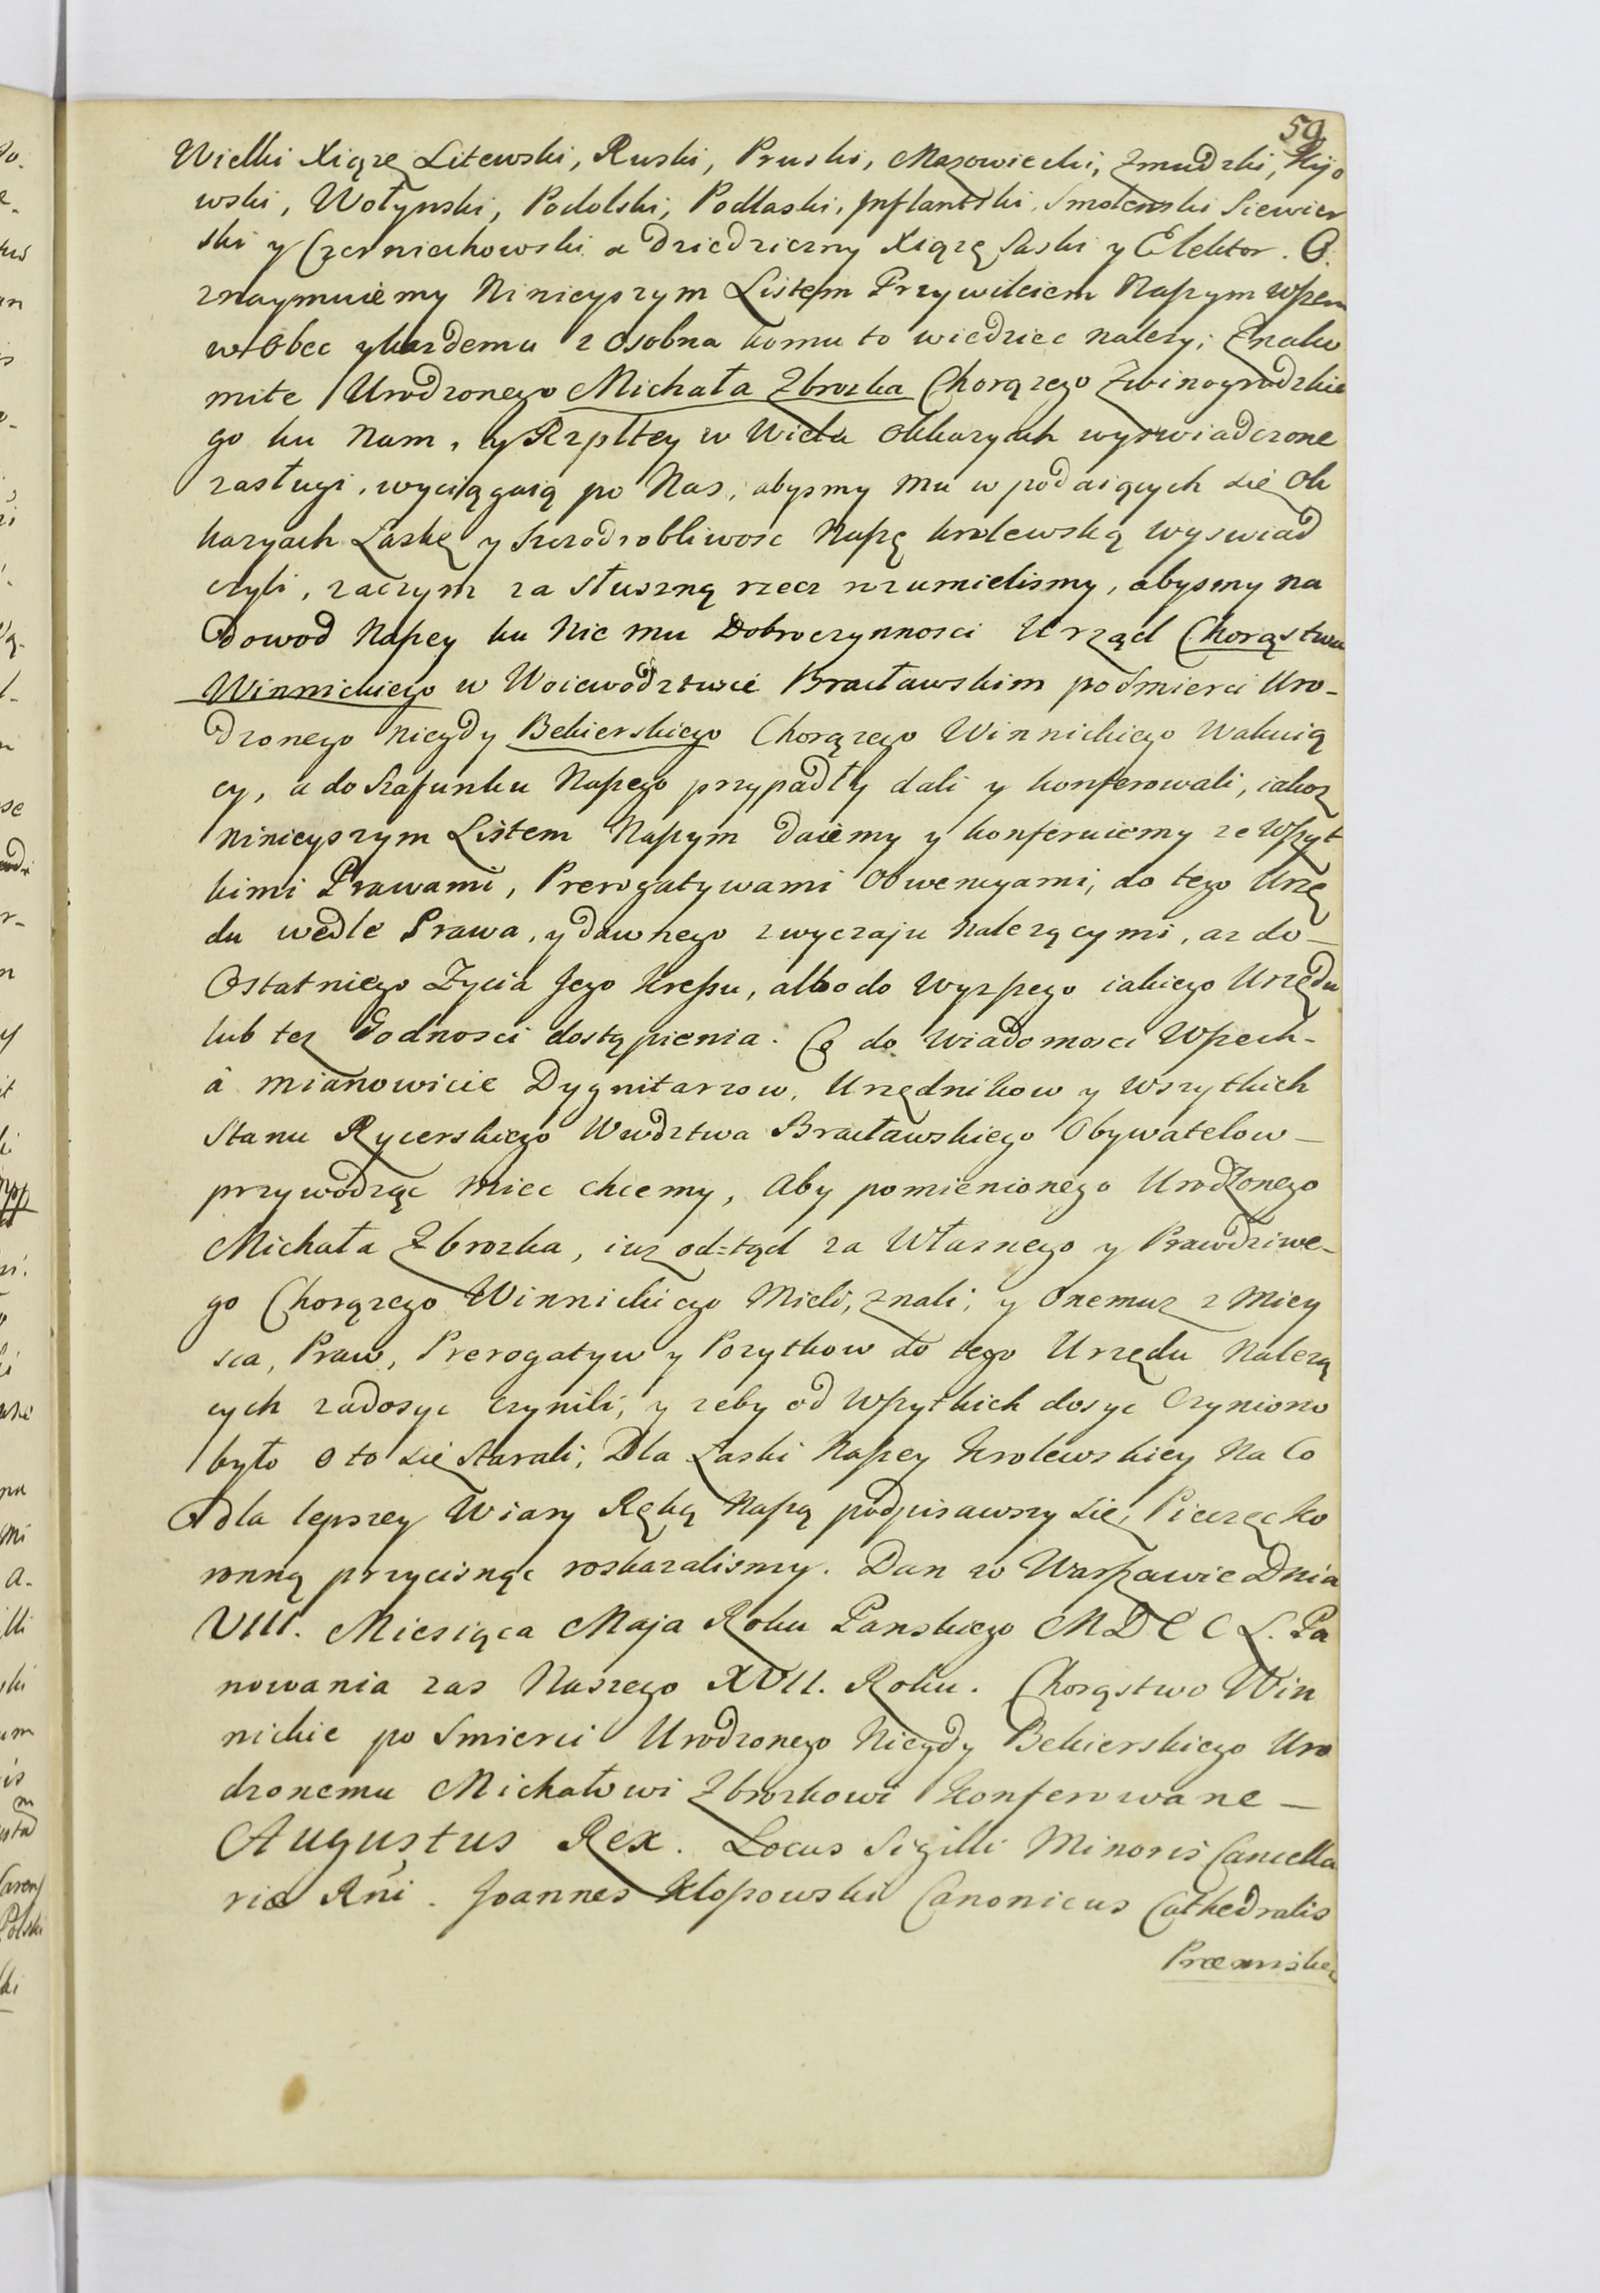 59
Wielki Xiąze Litewski, Ruski, Pruski, Mazowiecki, Zmudzki, Kijo
wski, Wołynski, Podolski, Podlaski, Inflantski, Smolenski Siewier
ski y Czerniechowski a Dziedziczny Xiąze Saski y Elektor. O.
znaymuiemy Ninieyszym Listem Przywileiem Naszym wszem
w Obec y kazdemu z osobna komu to wiedziec nalezy; Znako
mite Urodzonego Michała Zbrozka Chorązego Zwinogrodzkie
go ku Nam, y Rzpltey w Wielu Okkazyach wyswiadczone
zasługi, wyciągaią po Nas, abysmy mu w podaiących się Ok
kazyach Łaskę y szczodrobliwosc Naszę krolewską wyswiad
czyli, zaczym za słuszną rzecz rozumielismy, abysmy na
Dowod Naszey ku Nie mu Dobroczynnosci Urząd Chorąstwa
Winnickiego w Woiewodztwie Bracławskim po smierci Uro-
dzonego niegdy Bekierskiego Chorązego Winnickiego Wakuią
cy, a do Szafunku Naszego przypadły dali y konferowali, iakoz
ninieyszym Listem Naszym daiemy y konferuiemy ze Wszyt
kimi Prawami, Prerogatywami Obwencyami, do tego Urzę
du wedle Prawa, y dawnego zwyczaju Nalezącymi, az do-
Ostatniego Zycia Jego kressu, albo do Wyzszego iakiego Urzędu
lub tez Godnosci dostąpienia. Co do Wiadomosci Wszech-
a mianowicie Dygnitarzow, Urzędnikow y wszytkich
Stanu Rycerskiego Wwdztwa Bracławskiego Obywatelow-
przywodząc miec chcemy, Aby pomienionego Urodzonego
Michała Zbrozka, iuz od=tąd za Własnego y Prawdziwe-
go Chorązego Winnickiego Mieli, znali, y Onemuz z Miey
sca, Praw, Prerogatyw y Pozytkow do tego Urzędu Nalezą
cych zadosyc czynili, y zeby od Wszytkich dosyc Czyniono
było o to się starali, Dla Łaski Naszey Krolewskiey Na Co
dla lepszey Wiary Ręką Naszą podpisawszy się, Pieczęc Ko
ronną przycisnąc roskazalismy. Dan w Warszawie Dnia
VIII. Miesiąca Maja Roku Panskiego MDCCL. Pa
nowania zas Naszego XVII. Roku. Chorąstwo Win
nickie po Smierci Urodzonego Niegdy Bekierskiego Uro
dzonemu Michałowi Zbrozkowi Konferowane-
Augustus Rex. Locus Sigilli Minoris Cancella
riæ Rni. Joannes Kłopowski Canonicus Cathedralis